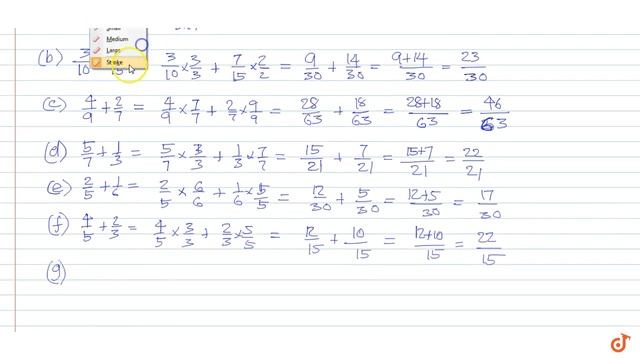 Medium
Large
Stroke
(b) 3/10 15 3/10 × 3/3 + 7/15 × 2/2 = 9/30 + 14/30 = 9+14/30 = 23/30
(c) 4/9 + 2/7 = 4/9 × 7/7 + 2/7 × 9/9 = 28/63 + 18/63 = 28+18/63 = 46/63
(d) 5/7 + 1/3 = 5/7 × 3/3 + 1/3 × 7/7 = 15/21 + 7/21 = 15+7/21 = 22/21
(e) 2/5 + 1/6 = 2/5 × 6/6 + 1/6 × 5/5 = 12/30 + 5/30 = 12+5/30 = 17/30
(f) 4/5 + 2/3 = 4/5 × 3/3 + 2/3 × 5/5 = 12/15 + 10/15 = 12+10/15 = 22/15
(g)